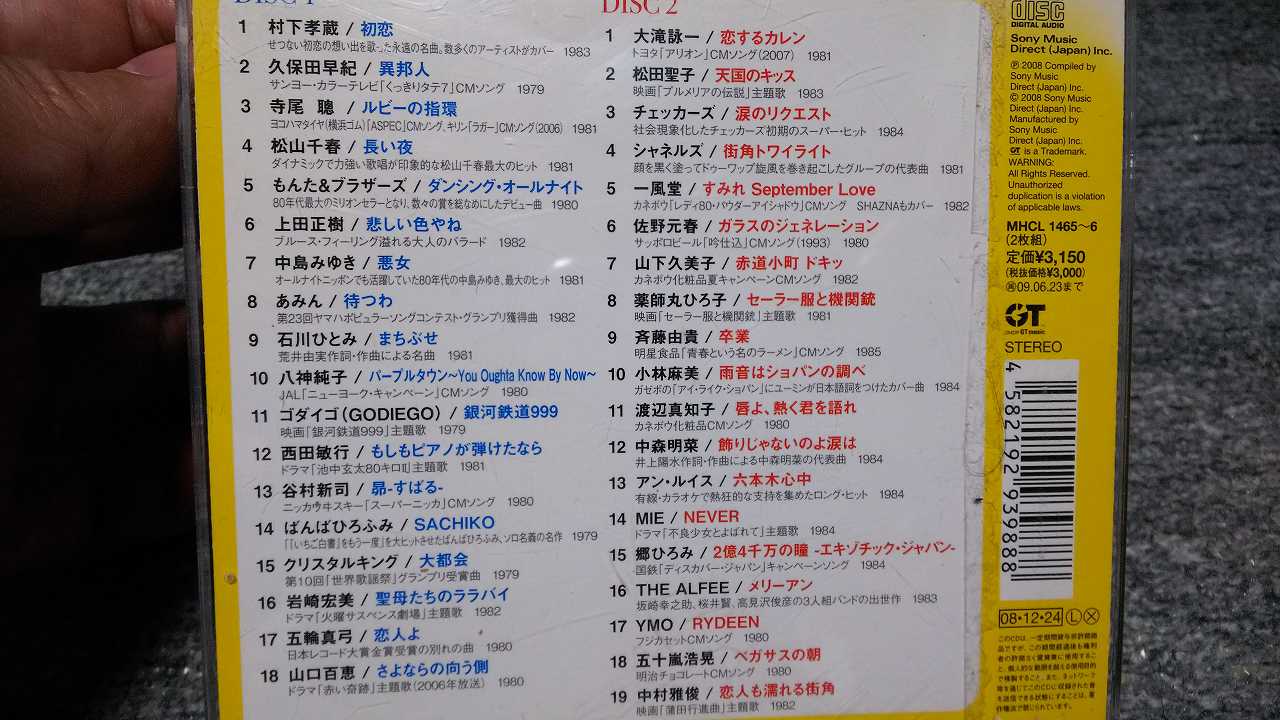 DISC 1
1 村下孝蔵 / 初恋
せつない初恋の想い出を歌った永遠の名曲。数多くのアーティストがカバー 1983
2 久保田早紀 / 異邦人
サンヨー・カラーテレビ「くっきりタテ7」CMソング 1979
3 寺尾 聰 / ルビーの指環
ヨコハマタイヤ(横浜ゴム)「ASPEC」CMソング、キリン「ラガー」CMソング(2006) 1981
4 松山千春 / 長い夜
ダイナミックで力強い歌唱が印象的な松山千春最大のヒット 1981
5 もんた&ブラザーズ / ダンシング・オールナイト
80年代最大のミリオンセラーとなり、数々の賞を総なめにしたデビュー曲 1980
6 上田正樹 / 悲しい色やね
ブルース・フィーリング溢れる大人のバラード 1982
7 中島みゆき / 悪女
オールナイトニッポンでも活躍していた80年代の中島みゆき、最大のヒット 1981
8 あみん / 待つわ
第23回ヤマハポピュラーソングコンテスト・グランプリ獲得曲 1982
9 石川ひとみ / まちぶせ
荒井由実作詞・作曲による名曲 1981
10 八神純子 / パープルタウン〜You Oughta Know By Now〜
JAL「ニューヨーク・キャンペーン」CMソング 1980
11 ゴダイゴ(GODIEGO) / 銀河鉄道999
映画「銀河鉄道999」主題歌 1979
12 西田敏行 / もしもピアノが弾けたなら
ドラマ「池中玄太80キロII」主題歌 1981
13 谷村新司 / 昴-すばる-
ニッカウヰスキー「スーパーニッカ」CMソング 1980
14 ばんばひろふみ / SACHIKO
「「いちご白書」をもう一度」を大ヒットさせたばんばひろふみ、ソロ名義の名作 1979
15 クリスタルキング / 大都会
第10回「世界歌謡祭」グランプリ受賞曲 1979
16 岩崎宏美 / 聖母たちのララバイ
ドラマ「火曜サスペンス劇場」主題歌 1982
17 五輪真弓 / 恋人よ
日本レコード大賞金賞受賞の別れの曲 1980
18 山口百恵 / さよならの向う側
ドラマ「赤い奇跡」主題歌(2006年放送) 1980
DISC 2
1 大滝詠一 / 恋するカレン
トヨタ「アリオン」CMソング(2007) 1981
2 松田聖子 / 天国のキッス
映画「プルメリアの伝説」主題歌 1983
3 チェッカーズ / 涙のリクエスト
社会現象化したチェッカーズ初期のスーパー・ヒット 1984
4 シャネルズ / 街角トワイライト
顔を黒く塗ってドゥーワップ旋風を巻き起こしたグループの代表曲 1981
5 一風堂 / すみれ September Love
カネボウ「レディ80・パウダーアイシャドウ」CMソング SHAZNAもカバー 1982
6 佐野元春 / ガラスのジェネレーション
サッポロビール「吟仕込」CMソング(1993) 1980
7 山下久美子 / 赤道小町 ドキッ
カネボウ化粧品夏キャンペーンCMソング 1982
8 薬師丸ひろ子 / セーラー服と機関銃
映画「セーラー服と機関銃」主題歌 1981
9 斉藤由貴 / 卒業
明星食品「青春という名のラーメン」CMソング 1985
10 小林麻美 / 雨音はショパンの調べ
ガゼボの「アイ・ライク・ショパン」にユーミンが日本語詞をつけたカバー曲 1984
11 渡辺真知子 / 唇よ、熱く君を語れ
カネボウ化粧品CMソング 1980
12 中森明菜 / 飾りじゃないのよ涙は
井上陽水作詞・作曲による中森明菜の代表曲 1984
13 アン・ルイス / 六本木心中
有線・カラオケで熱狂的な支持を集めたロング・ヒット 1984
14 MIE / NEVER
ドラマ「不良少女とよばれて」主題歌 1984
15 郷ひろみ / 2億4千万の瞳 -エキゾチック・ジャパン-
国鉄「ディスカバー・ジャパン」キャンペーンソング 1984
16 THE ALFEE / メリーアン
坂崎幸之助、桜井賢、高見沢俊彦の3人組バンドの出世作 1983
17 YMO / RYDEEN
フジカセットCMソング 1980
18 五十嵐浩晃 / ペガサスの朝
明治チョコレートCMソング 1980
19 中村雅俊 / 恋人も濡れる街角
映画「蒲田行進曲」主題歌 1982
disc
DIGITAL AUDIO
Sony Music
Direct (Japan) Inc.
℗ 2008 Compiled by
Sony Music
Direct (Japan) Inc.
© 2008 Sony Music
Direct (Japan) Inc.
Manufactured by
Sony Music
Direct (Japan) Inc.
GT is a Trademark.
WARNING:
All Rights Reserved.
Unauthorized
duplication is a violation
of applicable laws.
MHCL 1465〜6
(2枚組)
定価¥3,150
(税抜価格¥3,000)
再09.06.23まで
GT
STEREO
4 582192 939888
08・12・24 L X
このCDは、一定期間貸与非許諾商
品ですが、この期間経過後も権利
者の許諾なく賃貸業に使用するこ
と、個人的な範囲を超える使用目的
で複製すること、また、ネットワーク
等を通じてこのCDに収録された音
を送信できる状態にすることは、著
作権法で禁じられています。